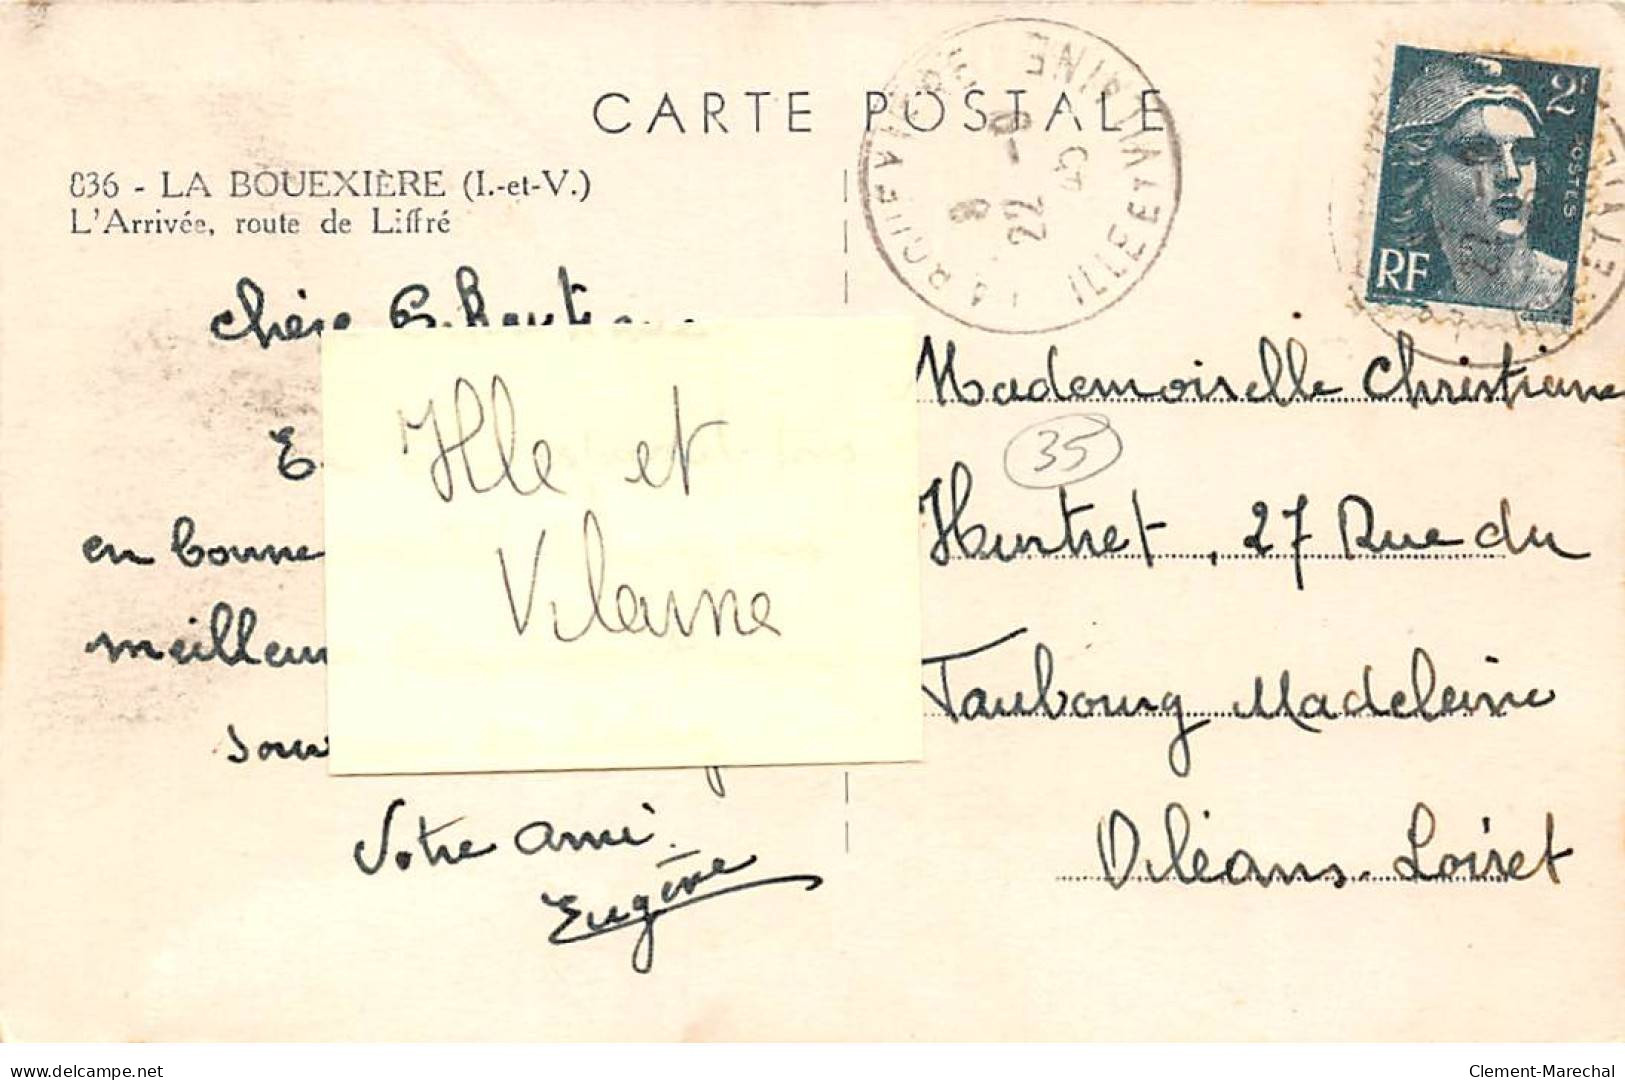 CARTE POSTALE
836 - LA BOUEXIÈRE (I.-et-V.)
L'Arrivée, route de Liffré
ILLE ET VILAINE
22 - 9
2f
POSTES
RF
chère
en bonne
meilleur
Votre ami.
Eugène
Ille et
Vilaine
35
Mademoiselle Christiane
Hurtret, 27 Rue du
Faubourg Madeleine
Orléans. Loiret
www.delcampe.net
Clement-Marechal